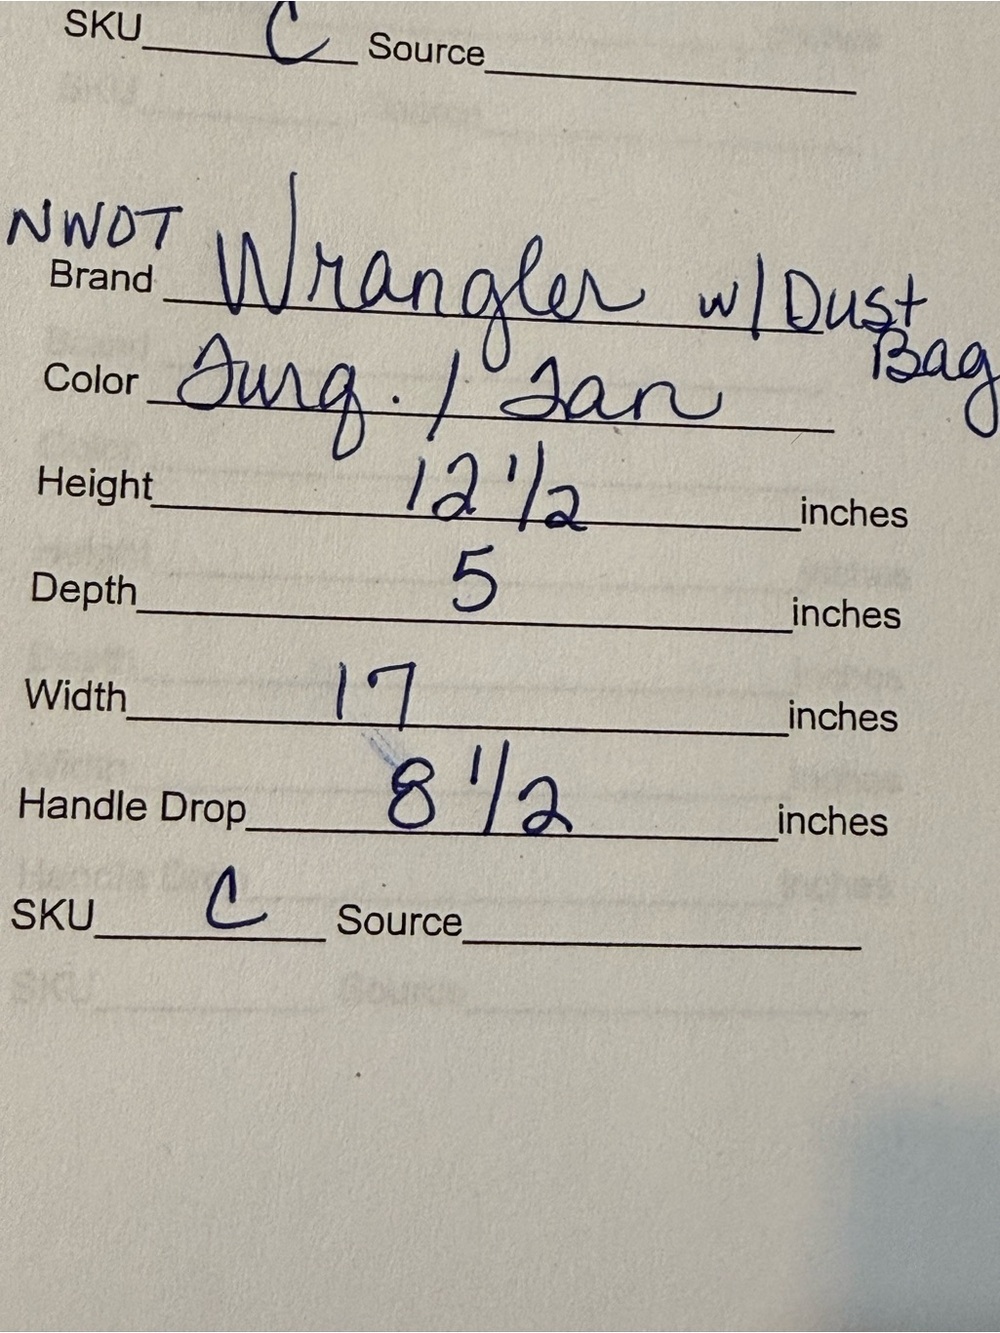 SKU C Source
NWOT
Brand Wrangler w/ Dust
Bag
Color Turq. / Tan
Height 12 1/2 inches
Depth 5 inches
Width 17 inches
Handle Drop 8 1/2 inches
SKU C Source